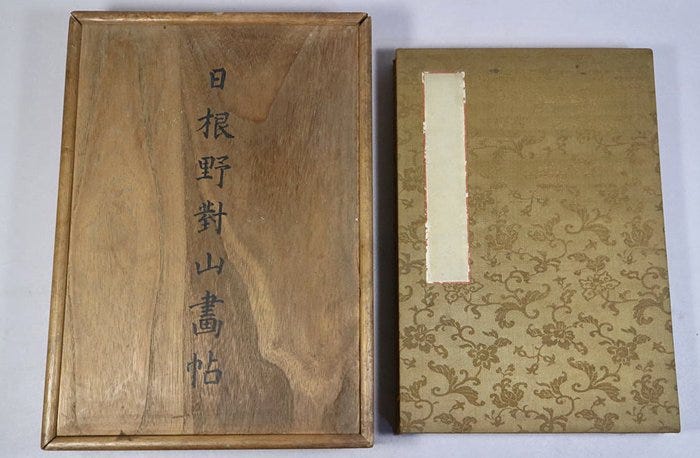 日根野對山畵帖